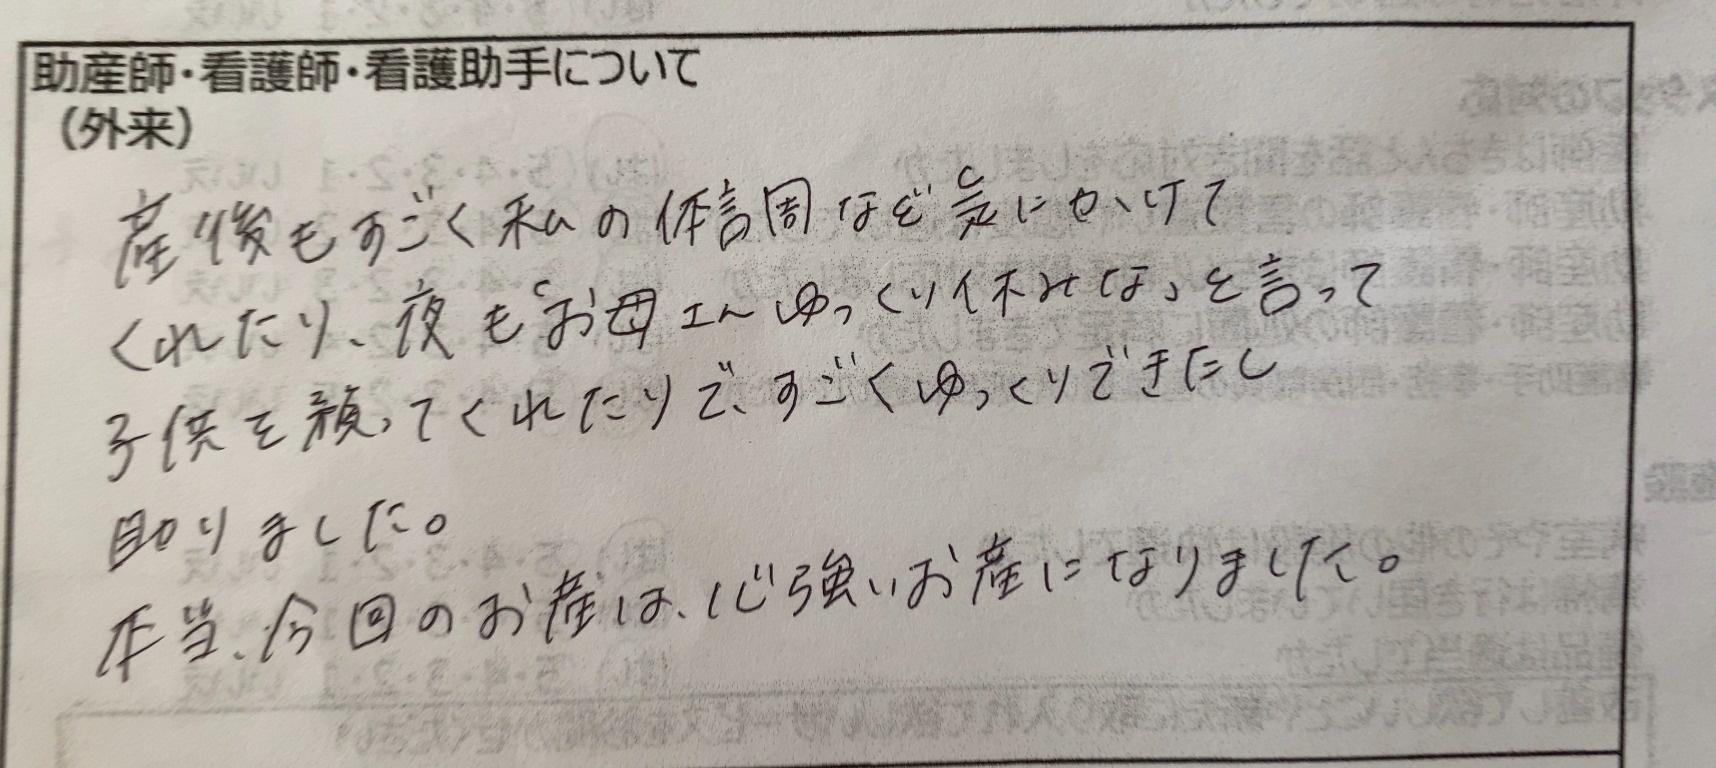 助産師・看護師・看護助手について
（外来）
産後もすごく私の体調など気にかけて
くれたり、夜も「お母さんゆっくり休みな」と言って
子供を預ってくれたりで、すごくゆっくりできたし
助りました。
本当、今回のお産は、心強いお産になりました。